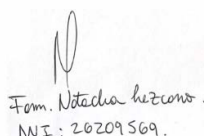 Fdm. Natacha Lezcano.
DNI: 26209569.